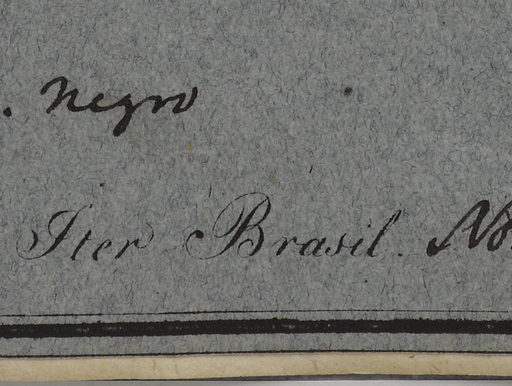 . Negro
Iter Brasil. No.